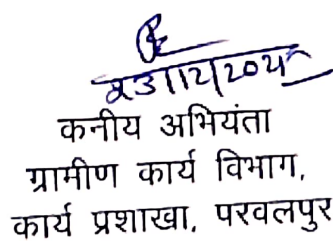 23/12/2025
कनीय अभियंता
ग्रामीण कार्य विभाग,
कार्य प्रशाखा, परवलपुर